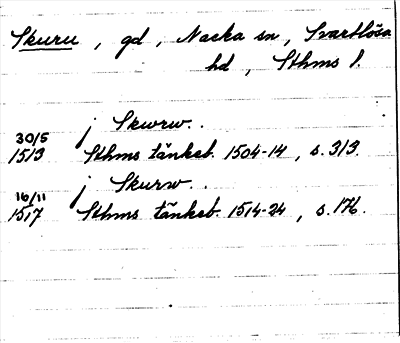 Skuru, gd, Nacka sn, Svartlösa
hd, Sthms l.
j Skwrw..
30/5
1513 Sthms tänkeb. 1504-14, s. 313.
j Skurw..
16/11
1517 Sthms tänkeb. 1514-24, s. 176.